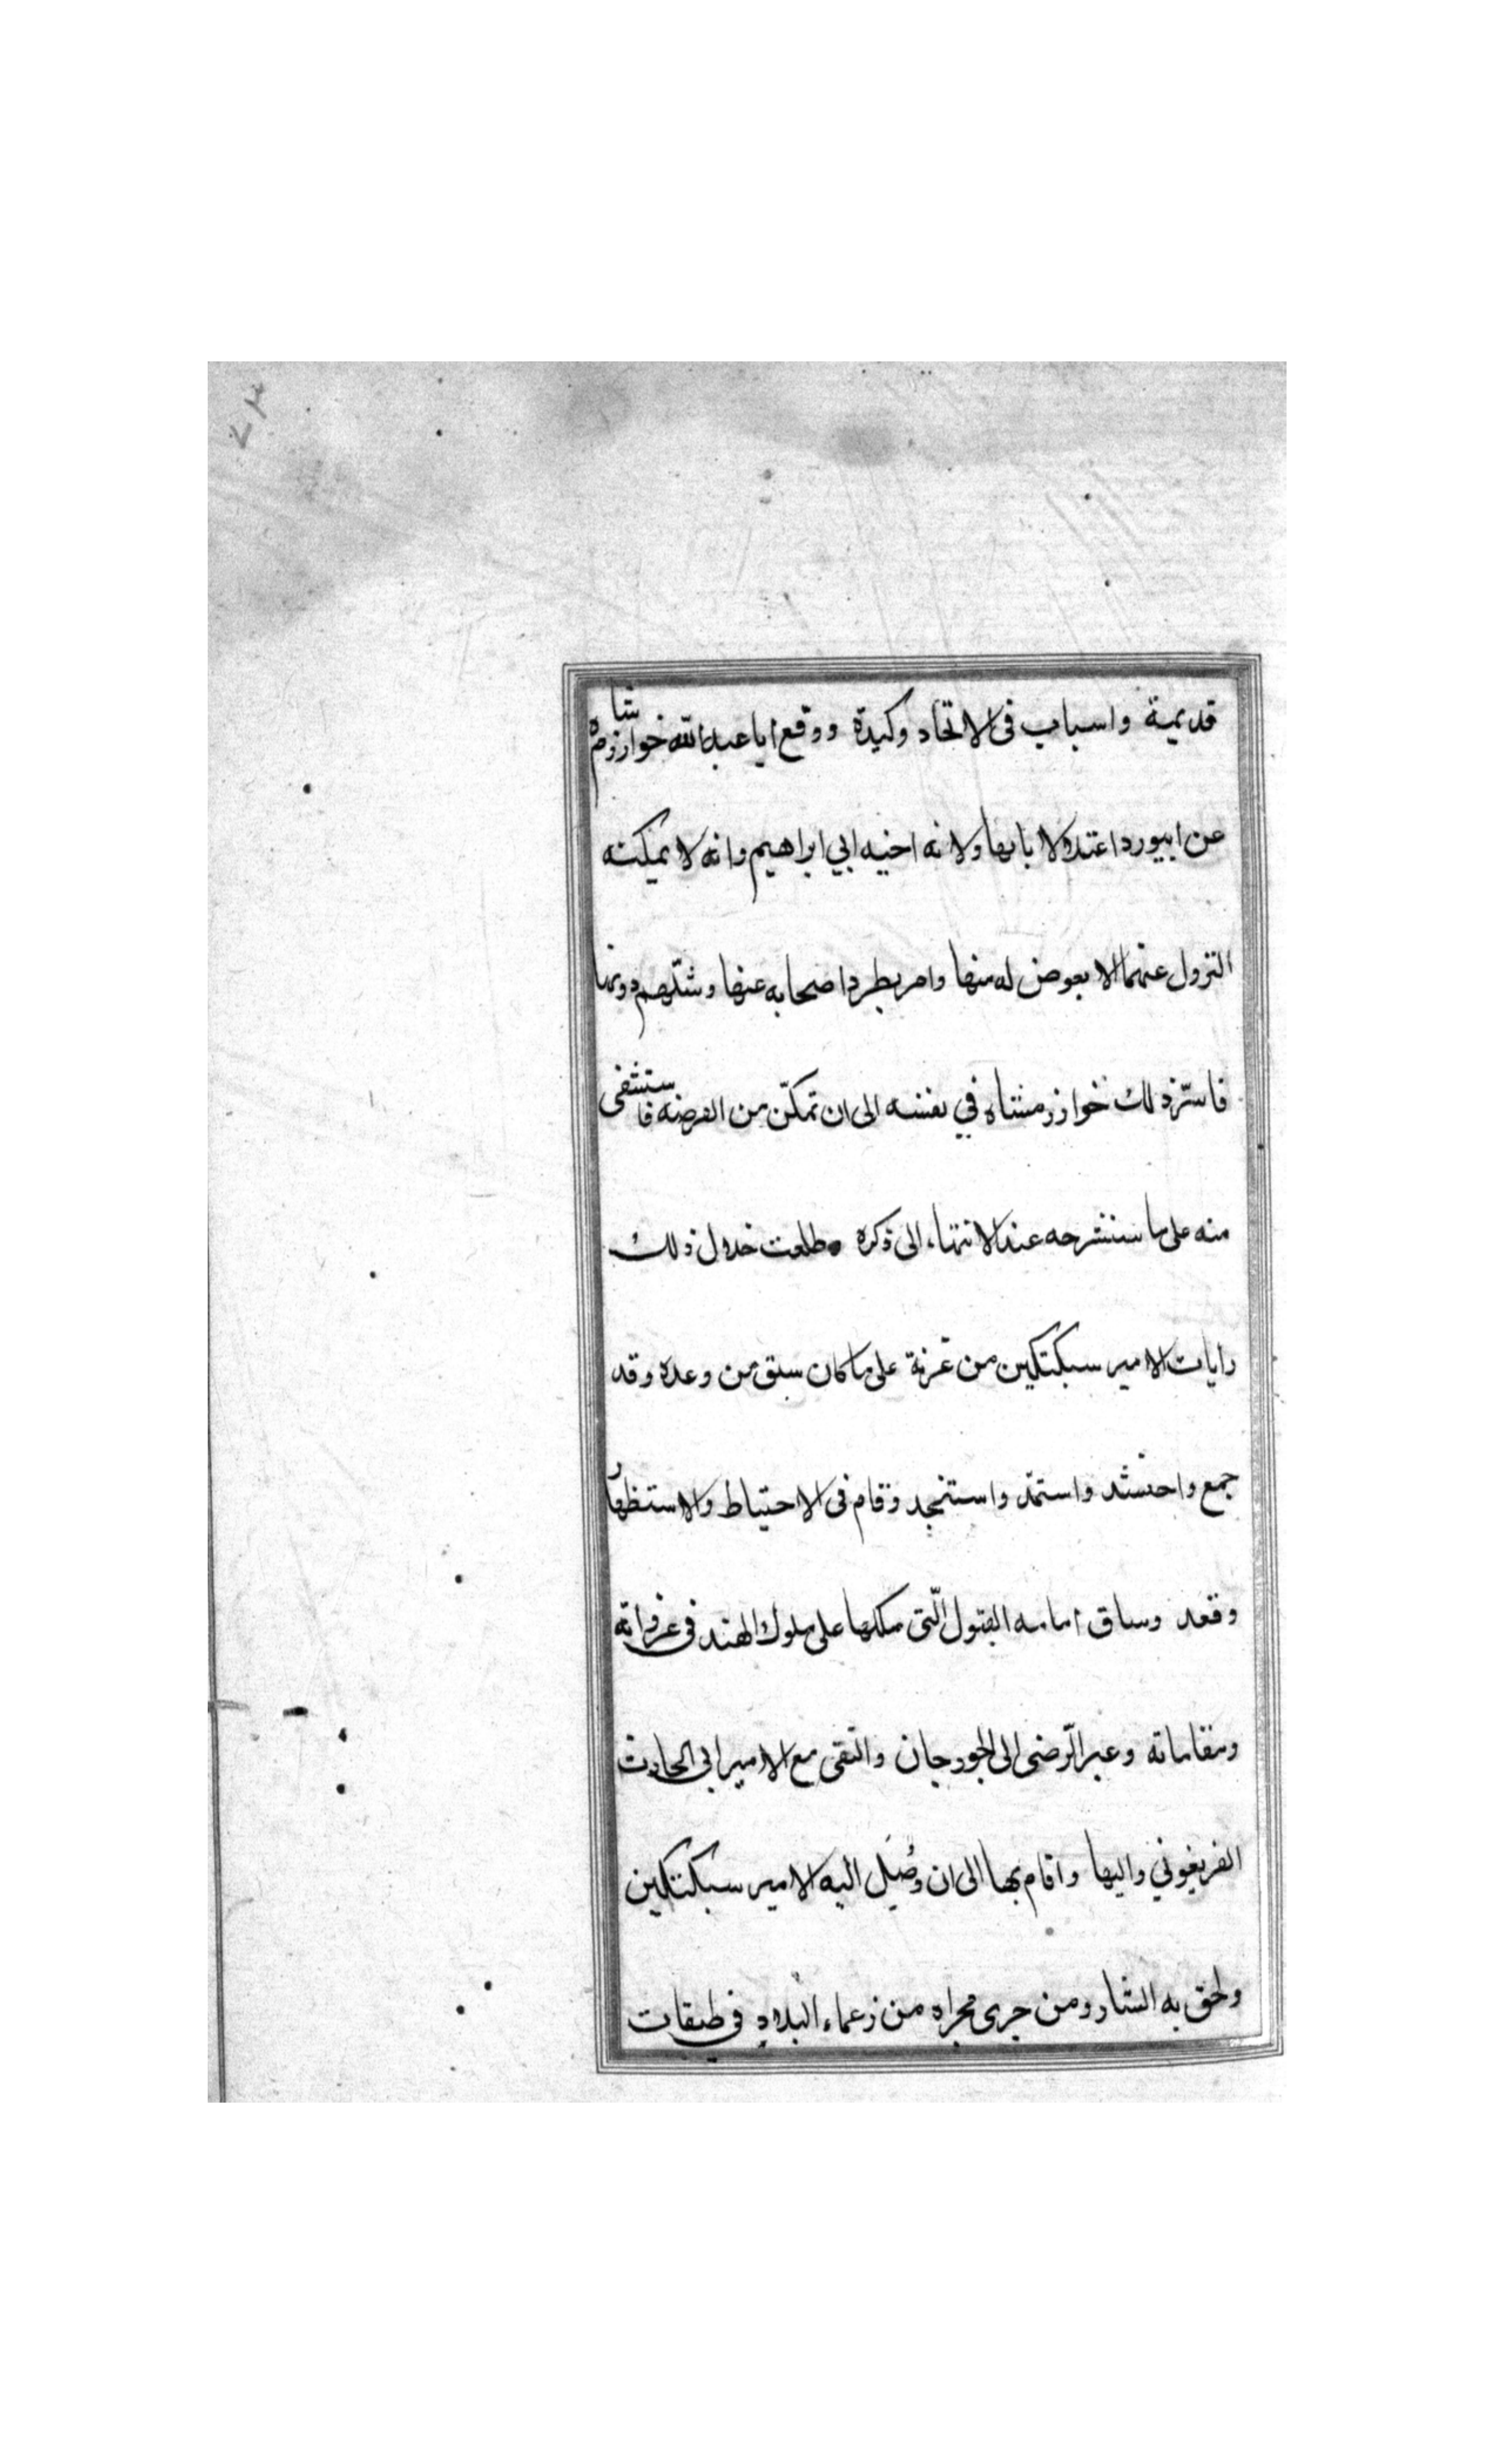 قديمية واسباب فى الاتحاد وكيدة ووقع ابا عبدالله خوارزمشاه
عن ابيورد اعتدلا بابها ولانه اخيه ابي ابراهيم وانه لا يمكنه
النزول عنهما الا بعوض له منها وامر بطرد اصحابه عنها وشلّهم دونها
فاسرّ ذلك خوارزمشاه في نفسه الى ان تمكّن من الفرضه فاستشفى
منه على ما سنشرحه عند الانتهاء الى ذكره وطلعت خلال ذلك
رايات الامير سبكتكين من غزنة على ما كان سبق من وعده وقد
جمع واحتشد واستمدّ واستنجد وقام فى الاحتياط والاستظهار
وقعد وساق امامه الفيول الّتى ملكها على ملوك الهند فى غزواته
ومقاماته وعبر الرّضى الى الجوزجان والتقى مع الامير ابى الحارث
الفريغوني واليها واقام بها الى ان وصل اليه الامير سبكتكين
ولحق به الشار ومن جرى مجراه من زعماء البلاد فى طبقات